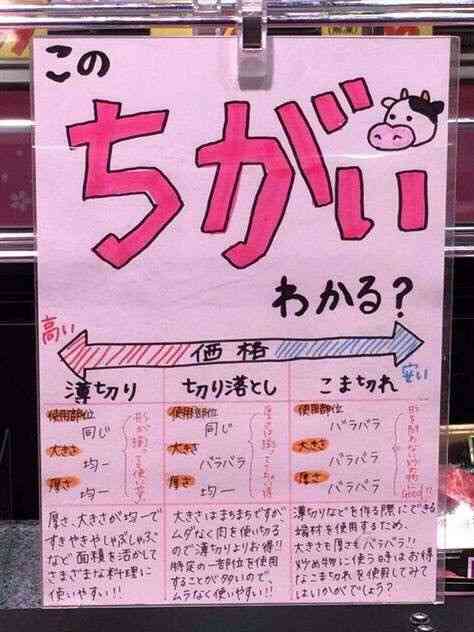 この
ちがい
わかる?
高い
価格
安い
薄切り
使用部位
同じ
大きさ
均一
厚さ
均一
形が揃って使い業
厚さ、大きさが均一で
すきやきやしゃぶしゃぶ
など面積を活かして
さまざまな料理に
使いやすい!!
切り落とし
使用部位
同じ
大きさ
バラバラ
厚さ
均一
大きさはまちまちですが、
ムダなく肉を使い切る
ので薄切りよりお得!!
特定の一部位を使用
することが多いので
ムラなく使いやすい!!
こま切れ
使用部位
バラバラ
大きさ
バラバラ
厚さ
バラバラ
薄切りなどを作る際にできる
端材を使用するため、
大きさも厚さもバラバラ!!
炒め物に使う時はお得
なこま切れを使用してみて
はいかがでしょう?